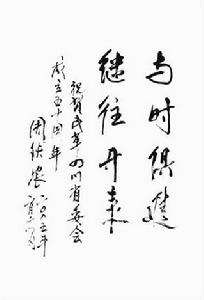 与时俱进
继往开来
祝贺民革四川省委会
成立五十周年
周铁农
二〇〇五年